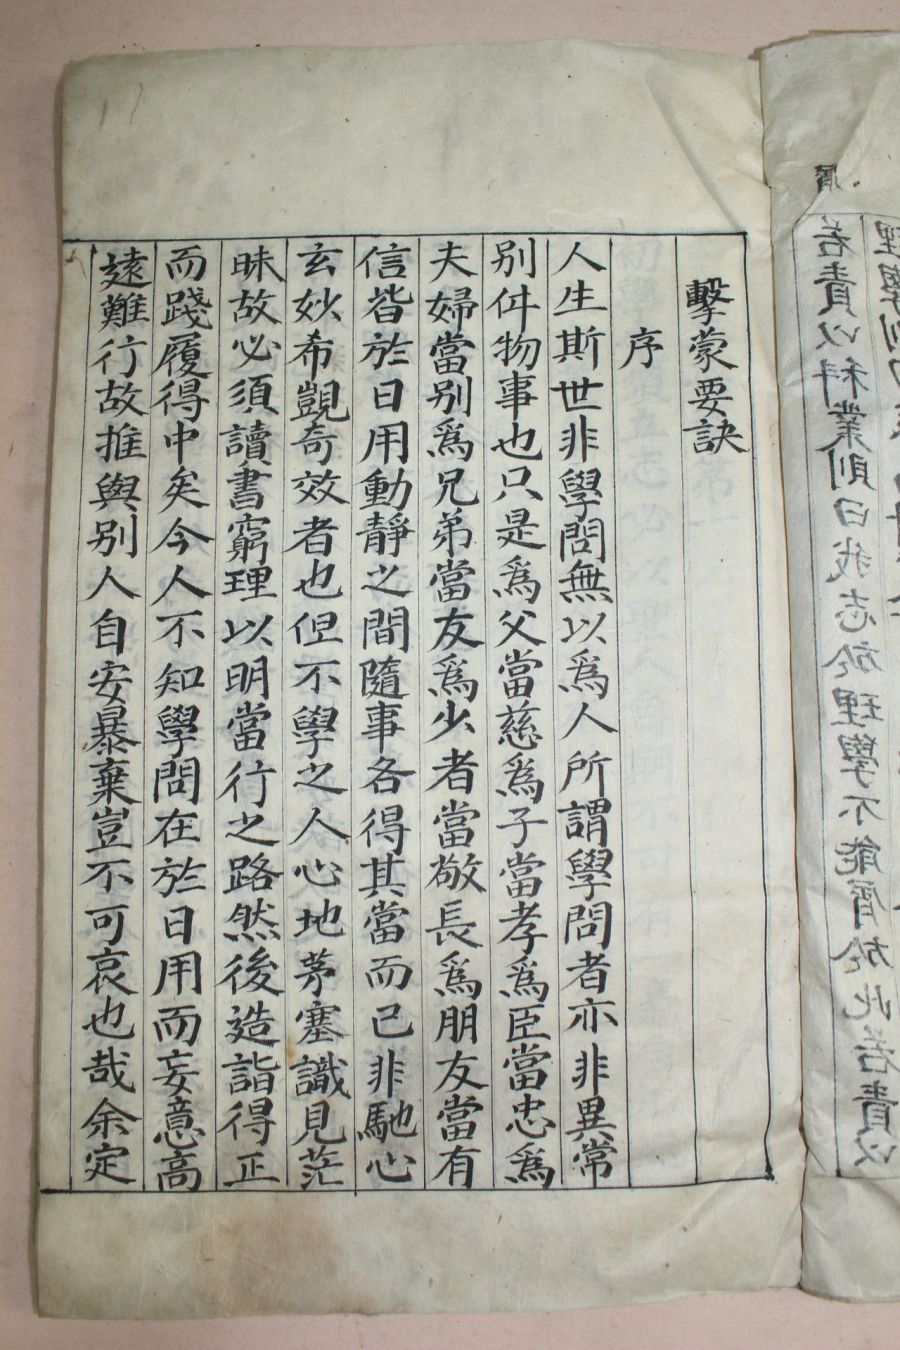 若責以科業則曰我志於理學不能屑於此若責以
擊蒙要訣
序
人生斯世非學問無以爲人所謂學問者亦非異常
别件物事也只是爲父當慈爲子當孝爲臣當忠爲
夫婦當别爲兄弟當友爲少者當敬長爲朋友當有
信皆於日用動靜之間隨事各得其當而已非馳心
玄妙希覬奇效者也但不學之人心地茅塞識見茫
昧故必須讀書窮理以明當行之路然後造詣得正
而踐履得中矣今人不知學問在於日用而妄意高
遠難行故推與别人自安暴棄豈不可哀也哉余定